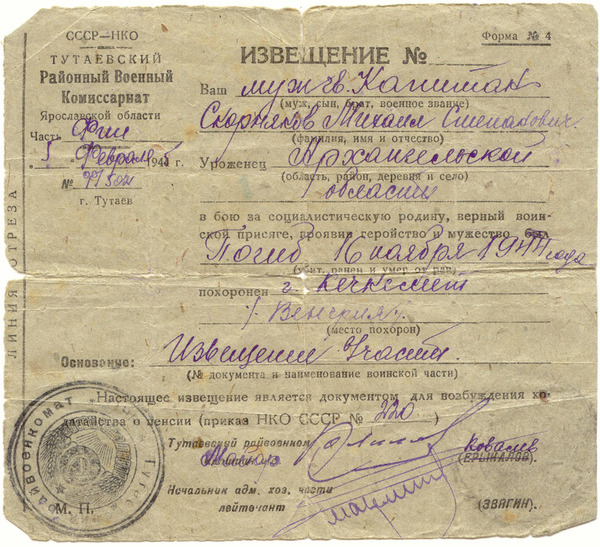 СССР—НКО
ТУТАЕВСКИЙ
Районный Военный
Комиссариат
Ярославской области
Часть
5 Февраля 1945 г.
№
г. Тутаев
ЛИНИЯ ОТРЕЗА
Форма № 4
ИЗВЕЩЕНИЕ №
Ваш муж гв. Капитан
(муж, сын, брат, военное звание)
Скорняков Михаил Степанович
(фамилия, имя и отчество)
Уроженец Архангельской
(область, район, деревня и село)
области
в бою за социалистическую родину, верный воин-
ской присяге, проявив геройство и мужество был
Погиб 16 ноября 1944 года
(убит, ранен и умер от ран)
похоронен г. Кечкемет
Венгрия
(место похорон)
Основание: Извещение части.
(№ документа и наименование воинской части)
Настоящее извещение является документом для возбуждения хо-
датайства о пенсии (приказ НКО СССР № 220)
Тутаевский райвоенком
Майор
Ковалев
(ЕРЫКАЛОВ).
Начальник адм. хоз. части
лейтенант
(ЗВЯГИН).
М. П.